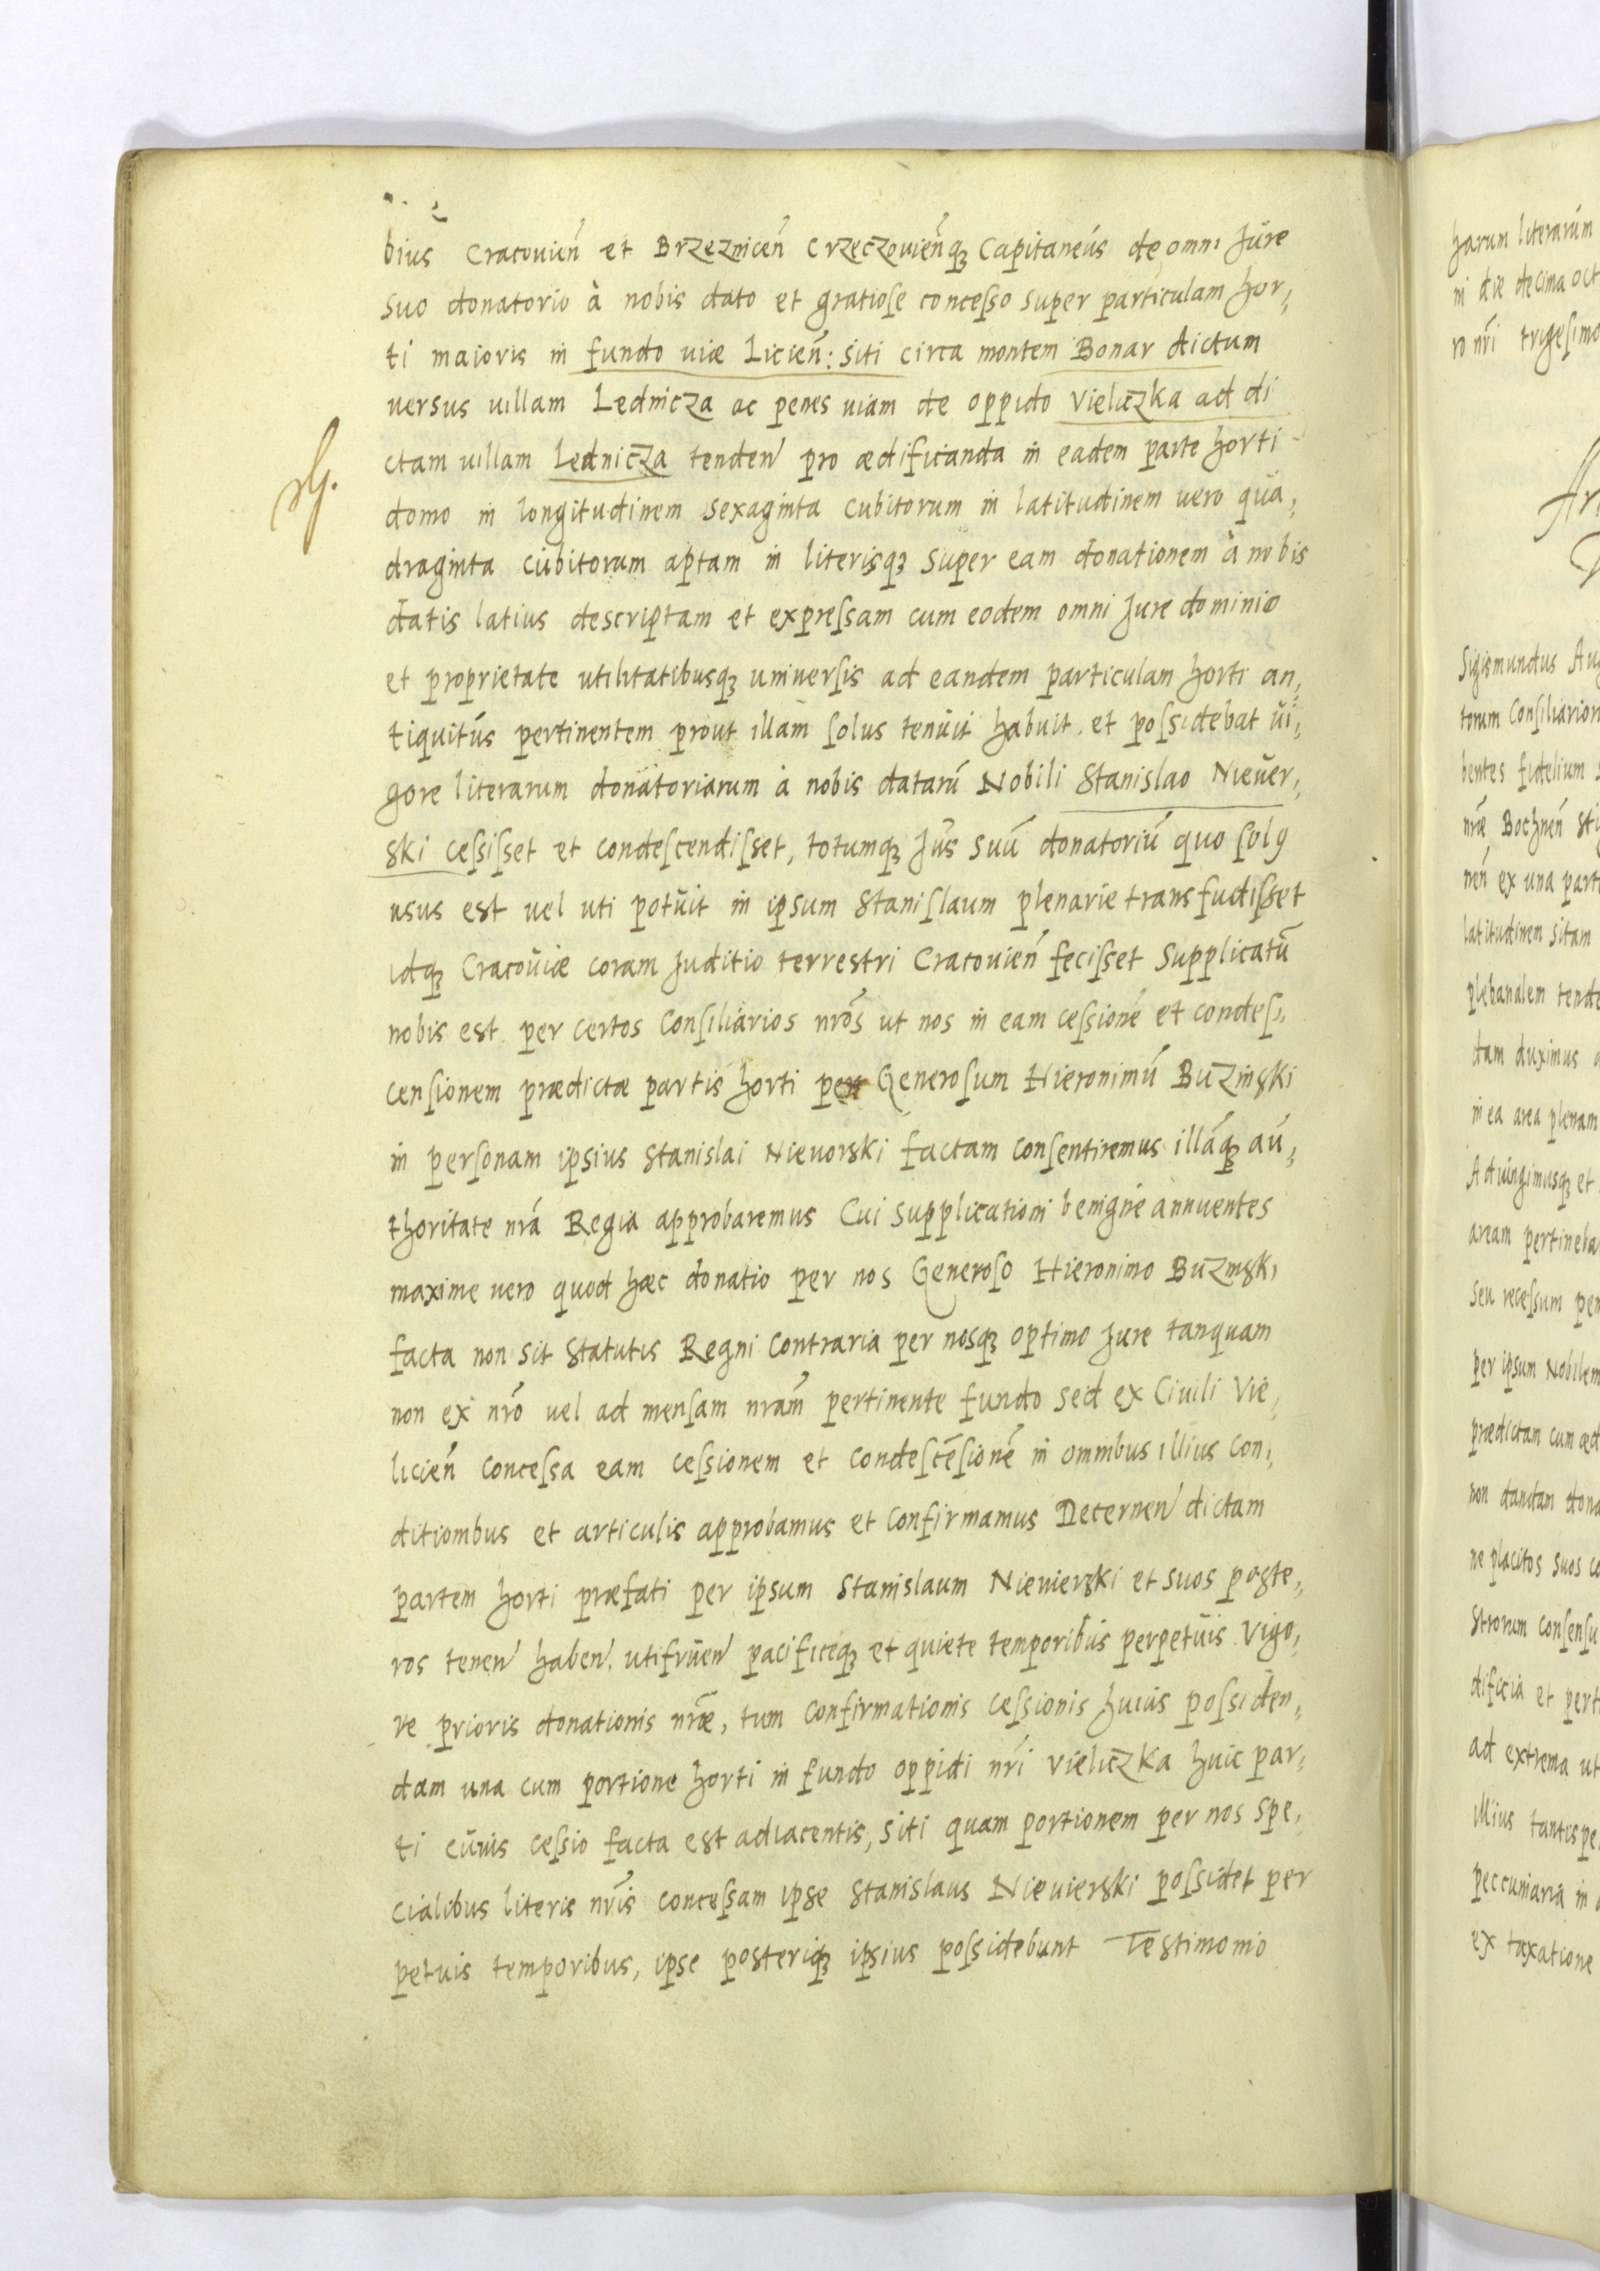 bius Cracovień et Brzezniceń Crzeczovieńq₃ Capitaneus de omni Jure
suo donatorio à nobis dato et gratiose concesso super particulam hor,
ti maioris in fundo viæ Licień: siti circa montem Bonar dictum
versus villam Lednicza ac penes viam de oppido Vieliczka ad di
ctam villam Lednicza tenden̄ pro ædificanda in eadem parte horti
domo in longitudinem sexaginta cubitorum in latitudinem vero qua,
draginta cubitorum aptam in literisq₃ super eam donationem à nobis
datis latius descriptam et expressam cum eodem omni Jure dominio
et proprietate utilitatibusq₃ universis ad eandem particulam horti an,
tiquitus pertinentem prout illam solus tenuit habuit et possidebat vi,
gore literarum donatoriarum à nobis datarū Nobili Stanislao Niever,
ski cessisset et condescendisset, totumq₃ Jus suū donatoriū quo solꝰ
usus est vel uti potuit in ipsum Stanislaum plenarie transfudisset
idq₃ Cracoviæ coram Juditio terrestri Cracovień fecisset Supplicatū
nobis est per certos Consiliarios nrōs ut nos in eam cessionē et condes,
censionem prædictæ partis horti per Generosum Hieronimū Buzinski
in personam ipsius Stanislai Nievorski factam consentiremus illāq₃ au,
thoritate nrā Regia approbaremus Cui supplicationi benigne annuentes
maxime vero quod hæc donatio per nos Generoso Hieronimo Buzinski
facta non sit Statutis Regni contraria per nosq₃ optimo Jure tanquam
non ex nrō vel ad mensam nrām pertinente fundo sed ex Civili Vie,
licień concessa eam cessionem et condescēsionē in omnibus illius con,
ditionibus et articulis approbamus et confirmamus Decernen̄ dictam
partem horti præfati per ipsum Stanislaum Nievierski et suos poste,
ros tenen̄ haben̄ utifruen̄ pacificeq₃ et quiete temporibus perpetuis Vigo,
re prioris donationis nrǣ, tum confirmationis cessionis huius possiden,
dam una cum portione horti in fundo oppidi nrī Vieliczka huic par,
ti cuius cessio facta est adiacentis, siti quam portionem per nos spe,
cialibus literis nrīs concessam ipse Stanislaus Nievierski possidet per
petuis temporibus, ipse posteriq₃ ipsius possidebunt Testimonio
harum literarum
in die decima oct
ro nrī trigesimo
Sigismundus Aug
torum Consiliarior
bentes fidelium
nrǣ Bochneń
neń ex una part
latitudinem sitam
plebanalem tende
dam duximus
in ea area plenam
Adiungimusq₃ et
aream pertineba
seu recessum per
per ipsum Nobilem
prædictam cum æd
non dandam dona
ne placitos suos co
strorum consensu
dificia et pert
ad extrema ut
illius tantispe
peccuniaria in
ex taxatione